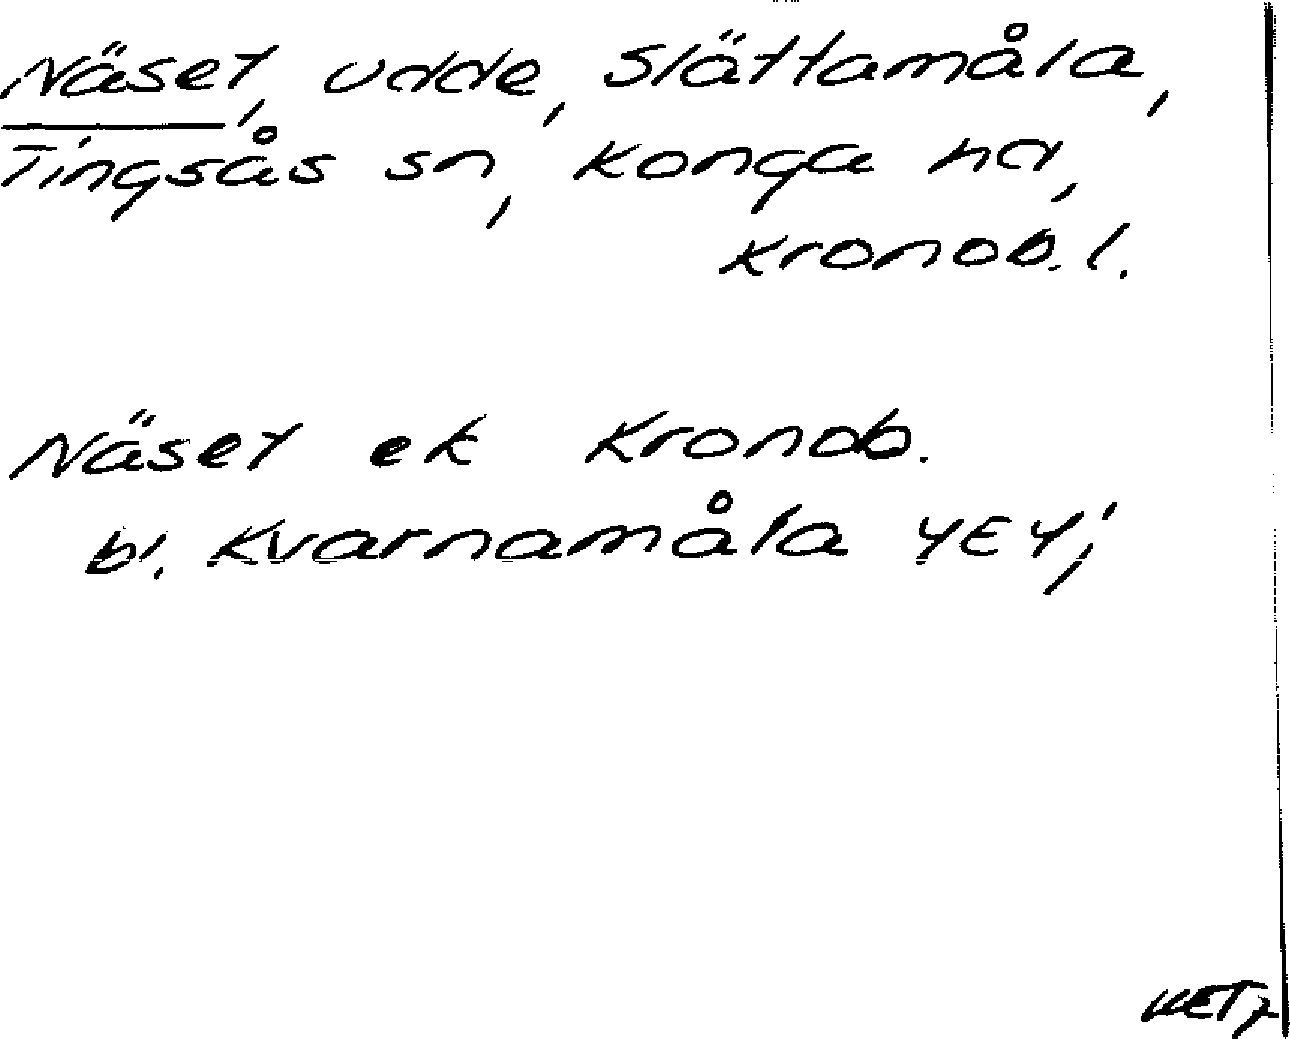 Näset, udde, Slättamåla,
Tingsås sn, Konga hd,
Kronob. l.
Näset ek Kronob.
bl. Kvarnamåla 4E4;